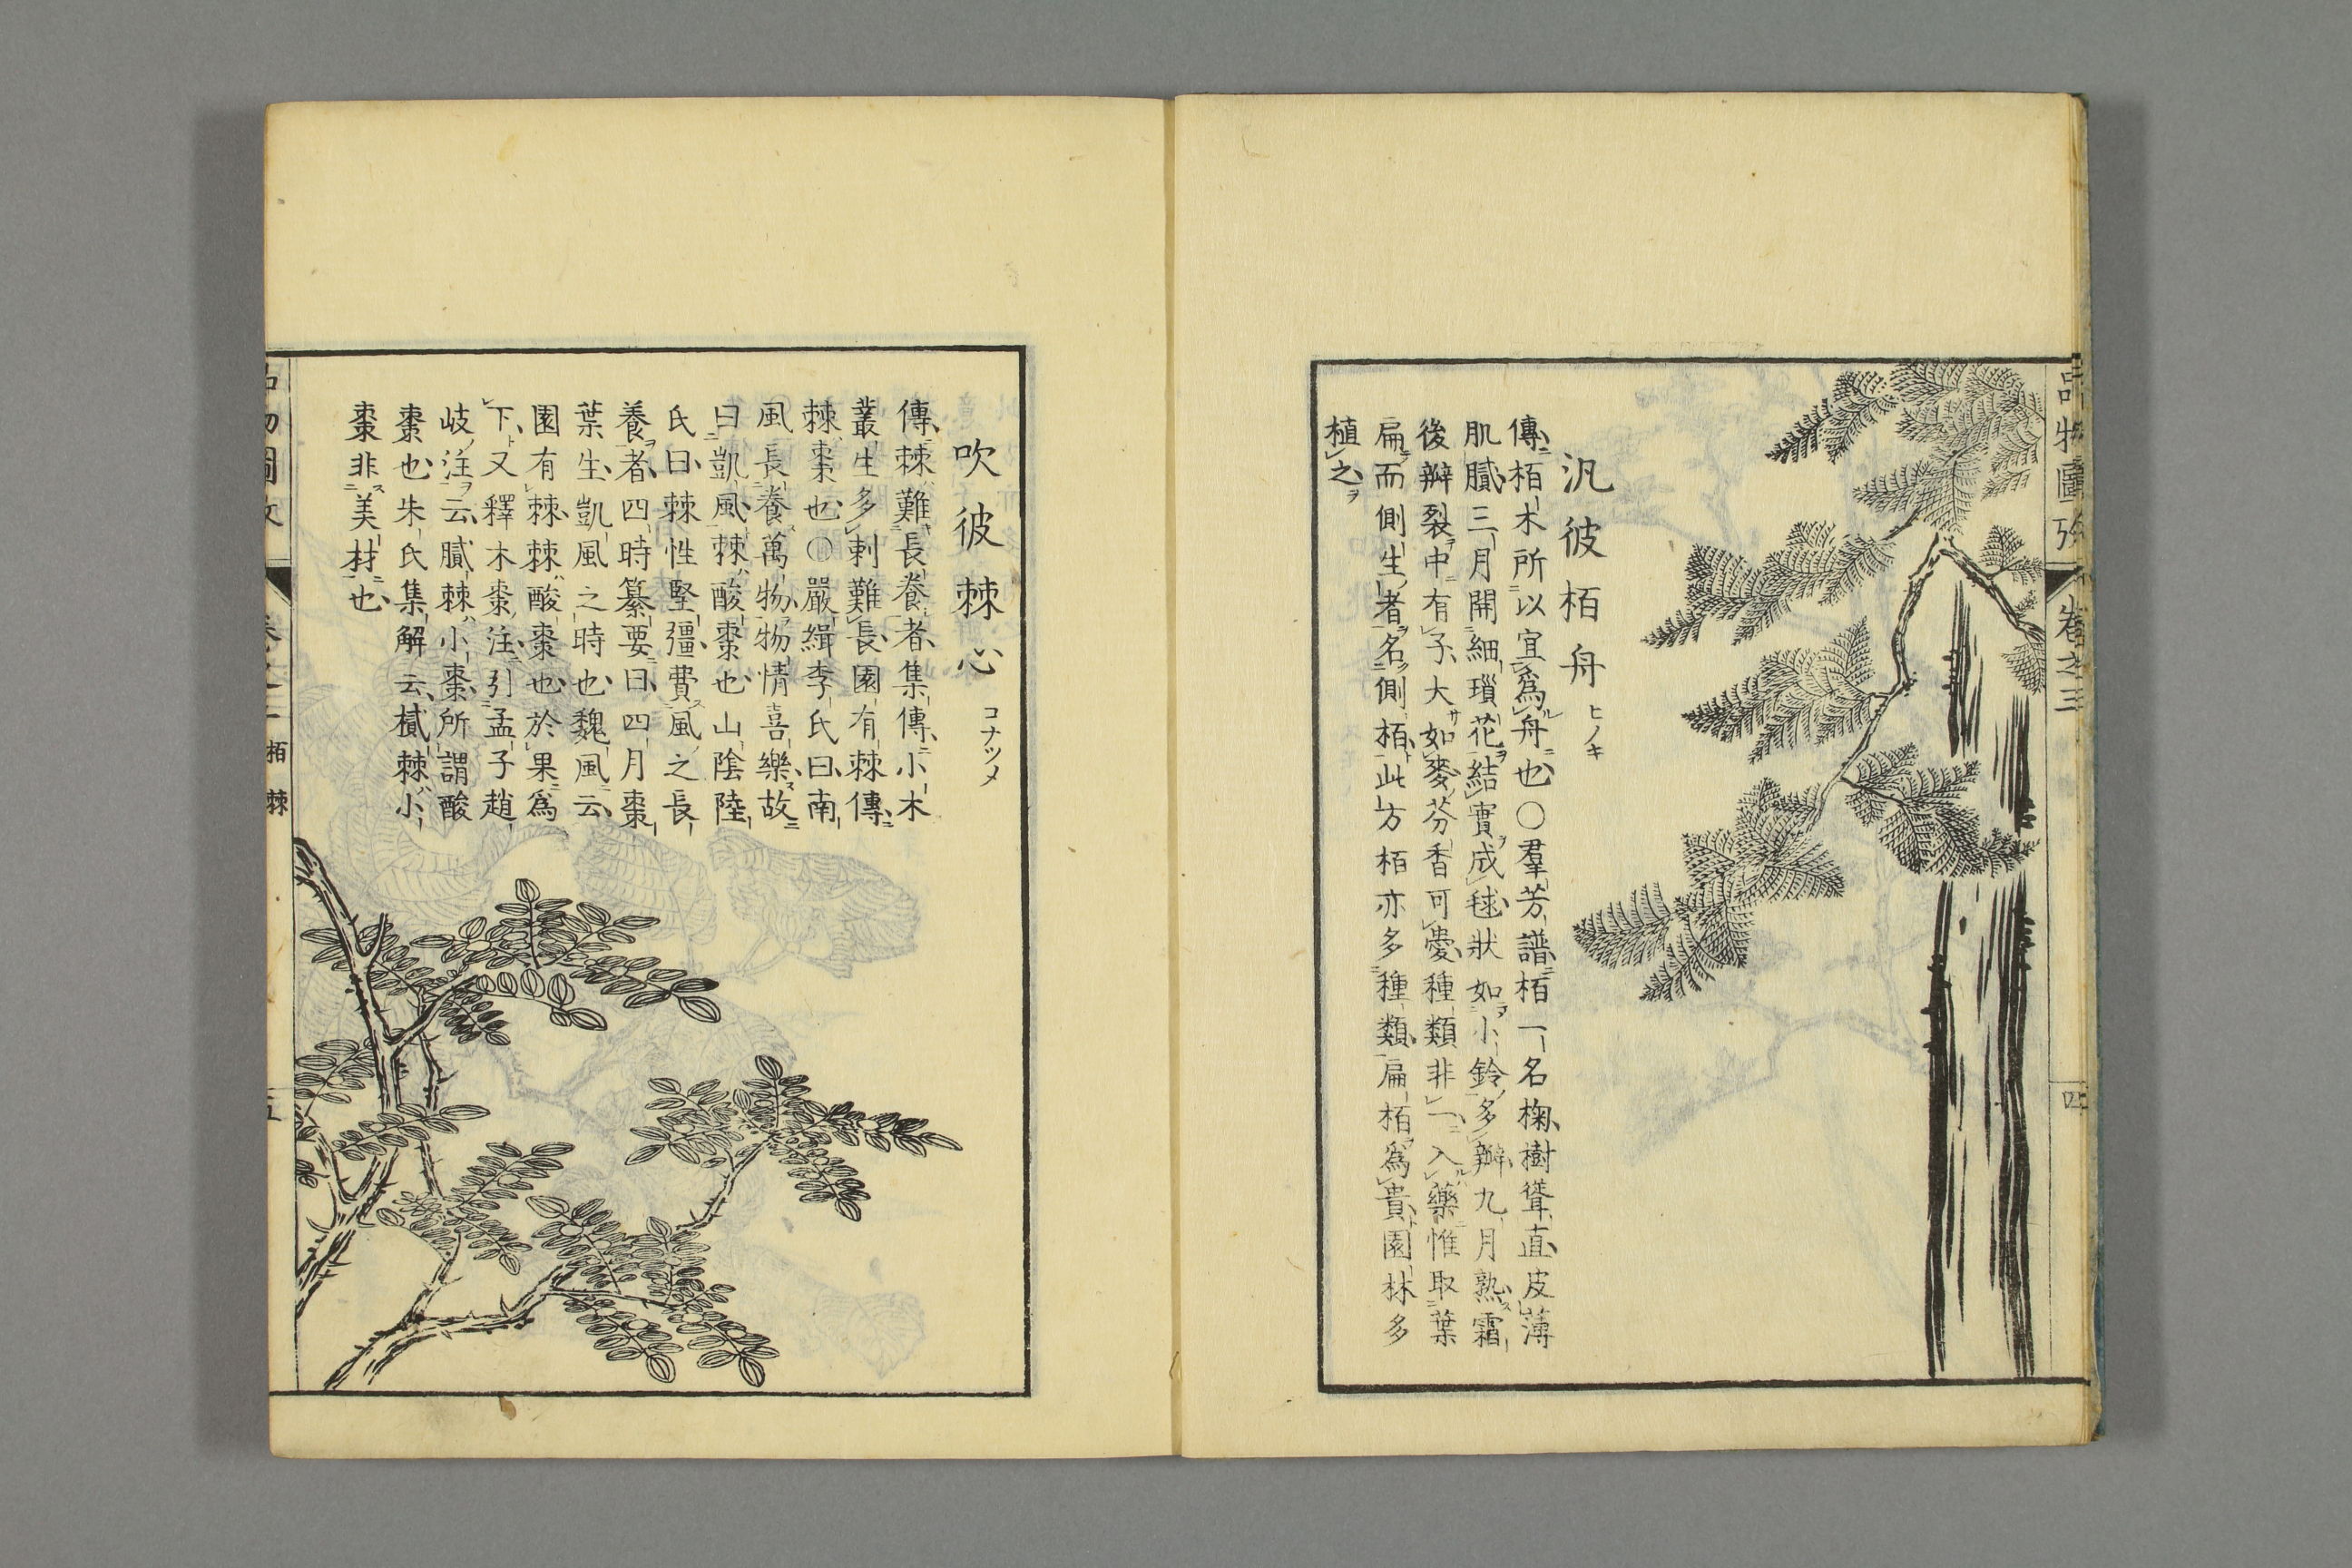 品物圖攷
卷之三
四
汎彼栢舟 ヒノキ
傳栢木所以宜爲舟也○羣芳譜栢一名椈樹聳直皮薄
肌膩三月開細瑣花結實成毬狀如小鈴多瓣九月熟霜
後瓣裂中有子大如麥芬香可愛種類非一入藥惟取葉
扁而側生者名側栢此方栢亦多種類扁栢爲貴園林多
植之
吹彼棘心 コナツメ
傳棘難長養者集傳小木
叢生多刺難長園有棘傳
棘棗也○嚴緝李氏曰南
風長養萬物物情喜樂故
曰凱風棘酸棗也山陰陸
氏曰棘性堅彊費風之長
養者四時纂要曰四月棗
葉生凱風之時也魏風云
園有棘棘酸棗也於果爲
下又釋木棗注引孟子趙
岐注云膩棘小棗所謂酸
棗也朱氏集解云樲棘小
棗非美材也
品物圖攷
卷之三
栢 棘
五